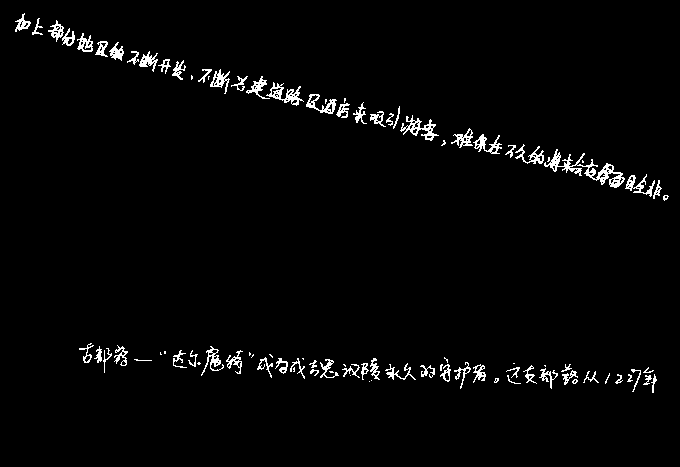 加上部分地区的不断开发、不断兴建道路及酒店来吸引游客，难保在不久的将来会变得面目全非。
古部落—“达尔扈特”成为成吉思汗陵永久的守护者。这支部落从1227年